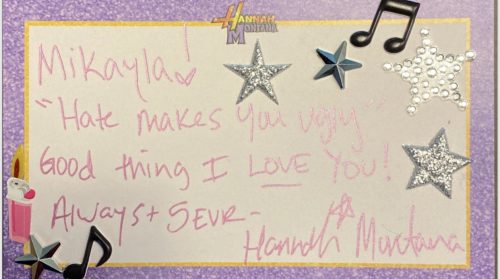 HANNAH
MONTANA
MiKAylA!
"Hate makes you ugly"
Good thing I LOVE YOU!
Always + 5EVR -
Hannah Montana